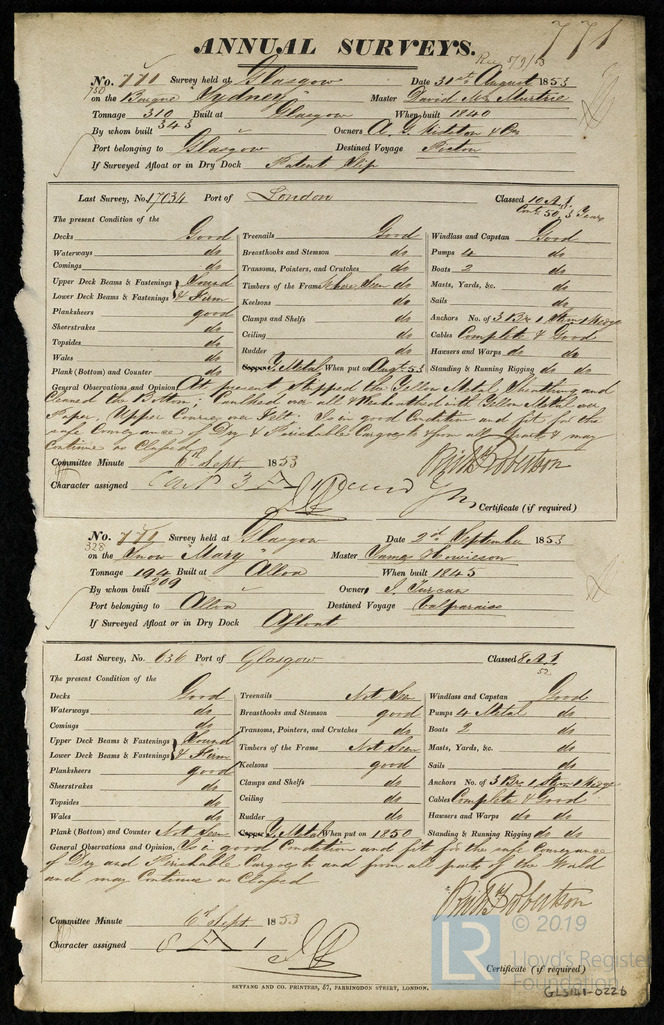 771
ANNUAL SURVEYS.
Rec 5/9/53
No. 771 Survey held at Glasgow Date 31st August 1853
750
on the Barque "Sydney" Master David Mc Murtrie
Tonnage 310 Built at Glasgow When built 1840
343
By whom built " Owners A. G. & Co
Port belonging to Glasgow Destined Voyage Boston
If Surveyed Afloat or in Dry Dock Patent Slip
Last Survey, No. 17034 Port of London Classed 10 A.1.
Cont. 50, 3 Years
The present Condition of the
Decks Good Treenails Good Windlass and Capstan Good
Waterways do Breasthooks and Stemson do Pumps 4 do
Comings do Transoms, Pointers, and Crutches do Boats 2 do
Upper Deck Beams & Fastenings Sound Timbers of the Frame Where Seen do Masts, Yards, &c. do
Lower Deck Beams & Fastenings & Firm Keelsons do Sails do
Planksheers good Clamps and Shelfs do Anchors No. of 3 Br 1 Strm 1 Kedge
Sheerstrakes do Ceiling do Cables Complete & Good
Topsides do Rudder do Hawsers and Warps do do
Wales do Copper Y. Metal, When put on Augt 53 Standing & Running Rigging do do
Plank (Bottom) and Counter do
General Observations and Opinion, At present stripped the Yellow Metal Sheathing and
cleaned the Bottom; Caulked over all & Resheathed with Yellow Metal over
Paper, Upper Courses over Felt. Is in good Condition and fit for the
safe Conveyance of Dry & Perishable Cargoes to & from all parts & may
Continue as Classed
Robertson
Committee Minute 6th Sept. 1853
Character assigned 3 A
Certificate (if required)
No. 771 Survey held at Glasgow Date 2nd September 1853
328
on the Snow "Mary" Master James Howieson
Tonnage 194 Built at Alloa When built 1845
209
By whom built " Owner J. Turcan
Port belonging to Alloa Destined Voyage Valparaiso
If Surveyed Afloat or in Dry Dock Afloat
Last Survey, No. 636 Port of Glasgow Classed 8 A.1
52
The present Condition of the
Decks Good Treenails Not Seen Windlass and Capstan Good
Waterways do Breasthooks and Stemson good Pumps 4 Metal do
Comings do Transoms, Pointers, and Crutches do Boats 2 do
Upper Deck Beams & Fastenings Sound Timbers of the Frame Not Seen Masts, Yards, &c. do
Lower Deck Beams & Fastenings & Firm Keelsons good Sails do
Planksheers good Clamps and Shelfs do Anchors No. of 3 Br 1 Strm 1 Kedge
Sheerstrakes do Ceiling do Cables Complete & Good
Topsides do Rudder do Hawsers and Warps do do
Wales do Copper Y. Metal When put on 1850 Standing & Running Rigging do do
Plank (Bottom) and Counter Not Seen
General Observations and Opinion, Is in good Condition and fit for the safe Conveyance
of Dry and Perishable Cargoes to and from all parts of the World
and may Continue as Classed
Robertson
Committee Minute 6th Sept. 1853
Character assigned 8 A 1
Certificate (if required)
SEYFANG AND CO. PRINTERS, 57, FARRINGDON STREET, LONDON.
LR
© 2019
Lloyd's Register
Foundation
GLS141-0226